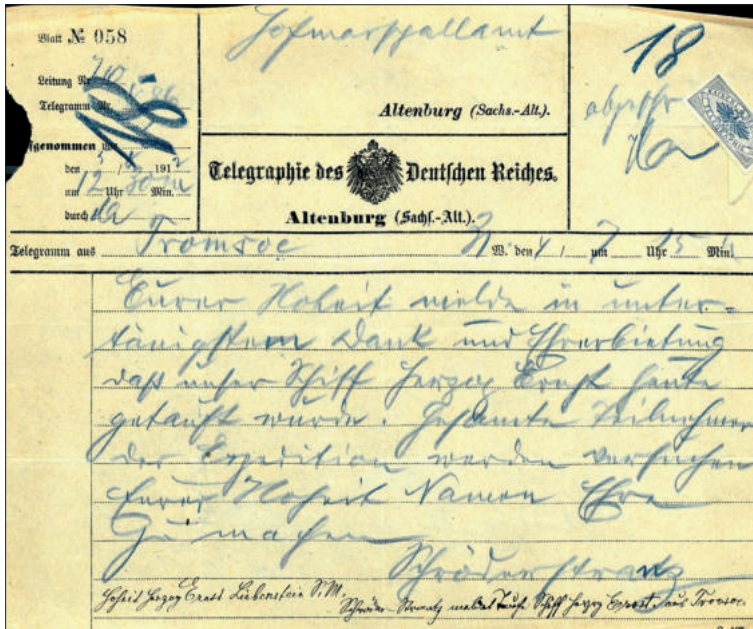 Blatt № 058
Hofmarschallamt
18
Leitung Nr.
Telegramm Nr.
Altenburg (Sachs.-Alt.).
genommen
den 5/ 191
um 12 Uhr 30 Min.
durch
Telegraphie des Deutschen Reiches.
Altenburg (Sachs.-Alt.).
Telegramm aus Tromsoe W. den 4/ um 7 Uhr 15 Min.
Eurer Hoheit melde in unter-
tänigstem Dank und Ehrerbietung
daß unser Schiff Herzog Ernst heute
getauft wurde. Gesamte Teilnehmer
der Expedition werden versuchen
Eurer Hoheit Namen Ehre
zu machen
Schröderstranz
Hoheit Herzog Ernst Liebenstein S.M.
Schröder-Strantz meldet Taufe Schiff Herzog Ernst aus Tromsoe.